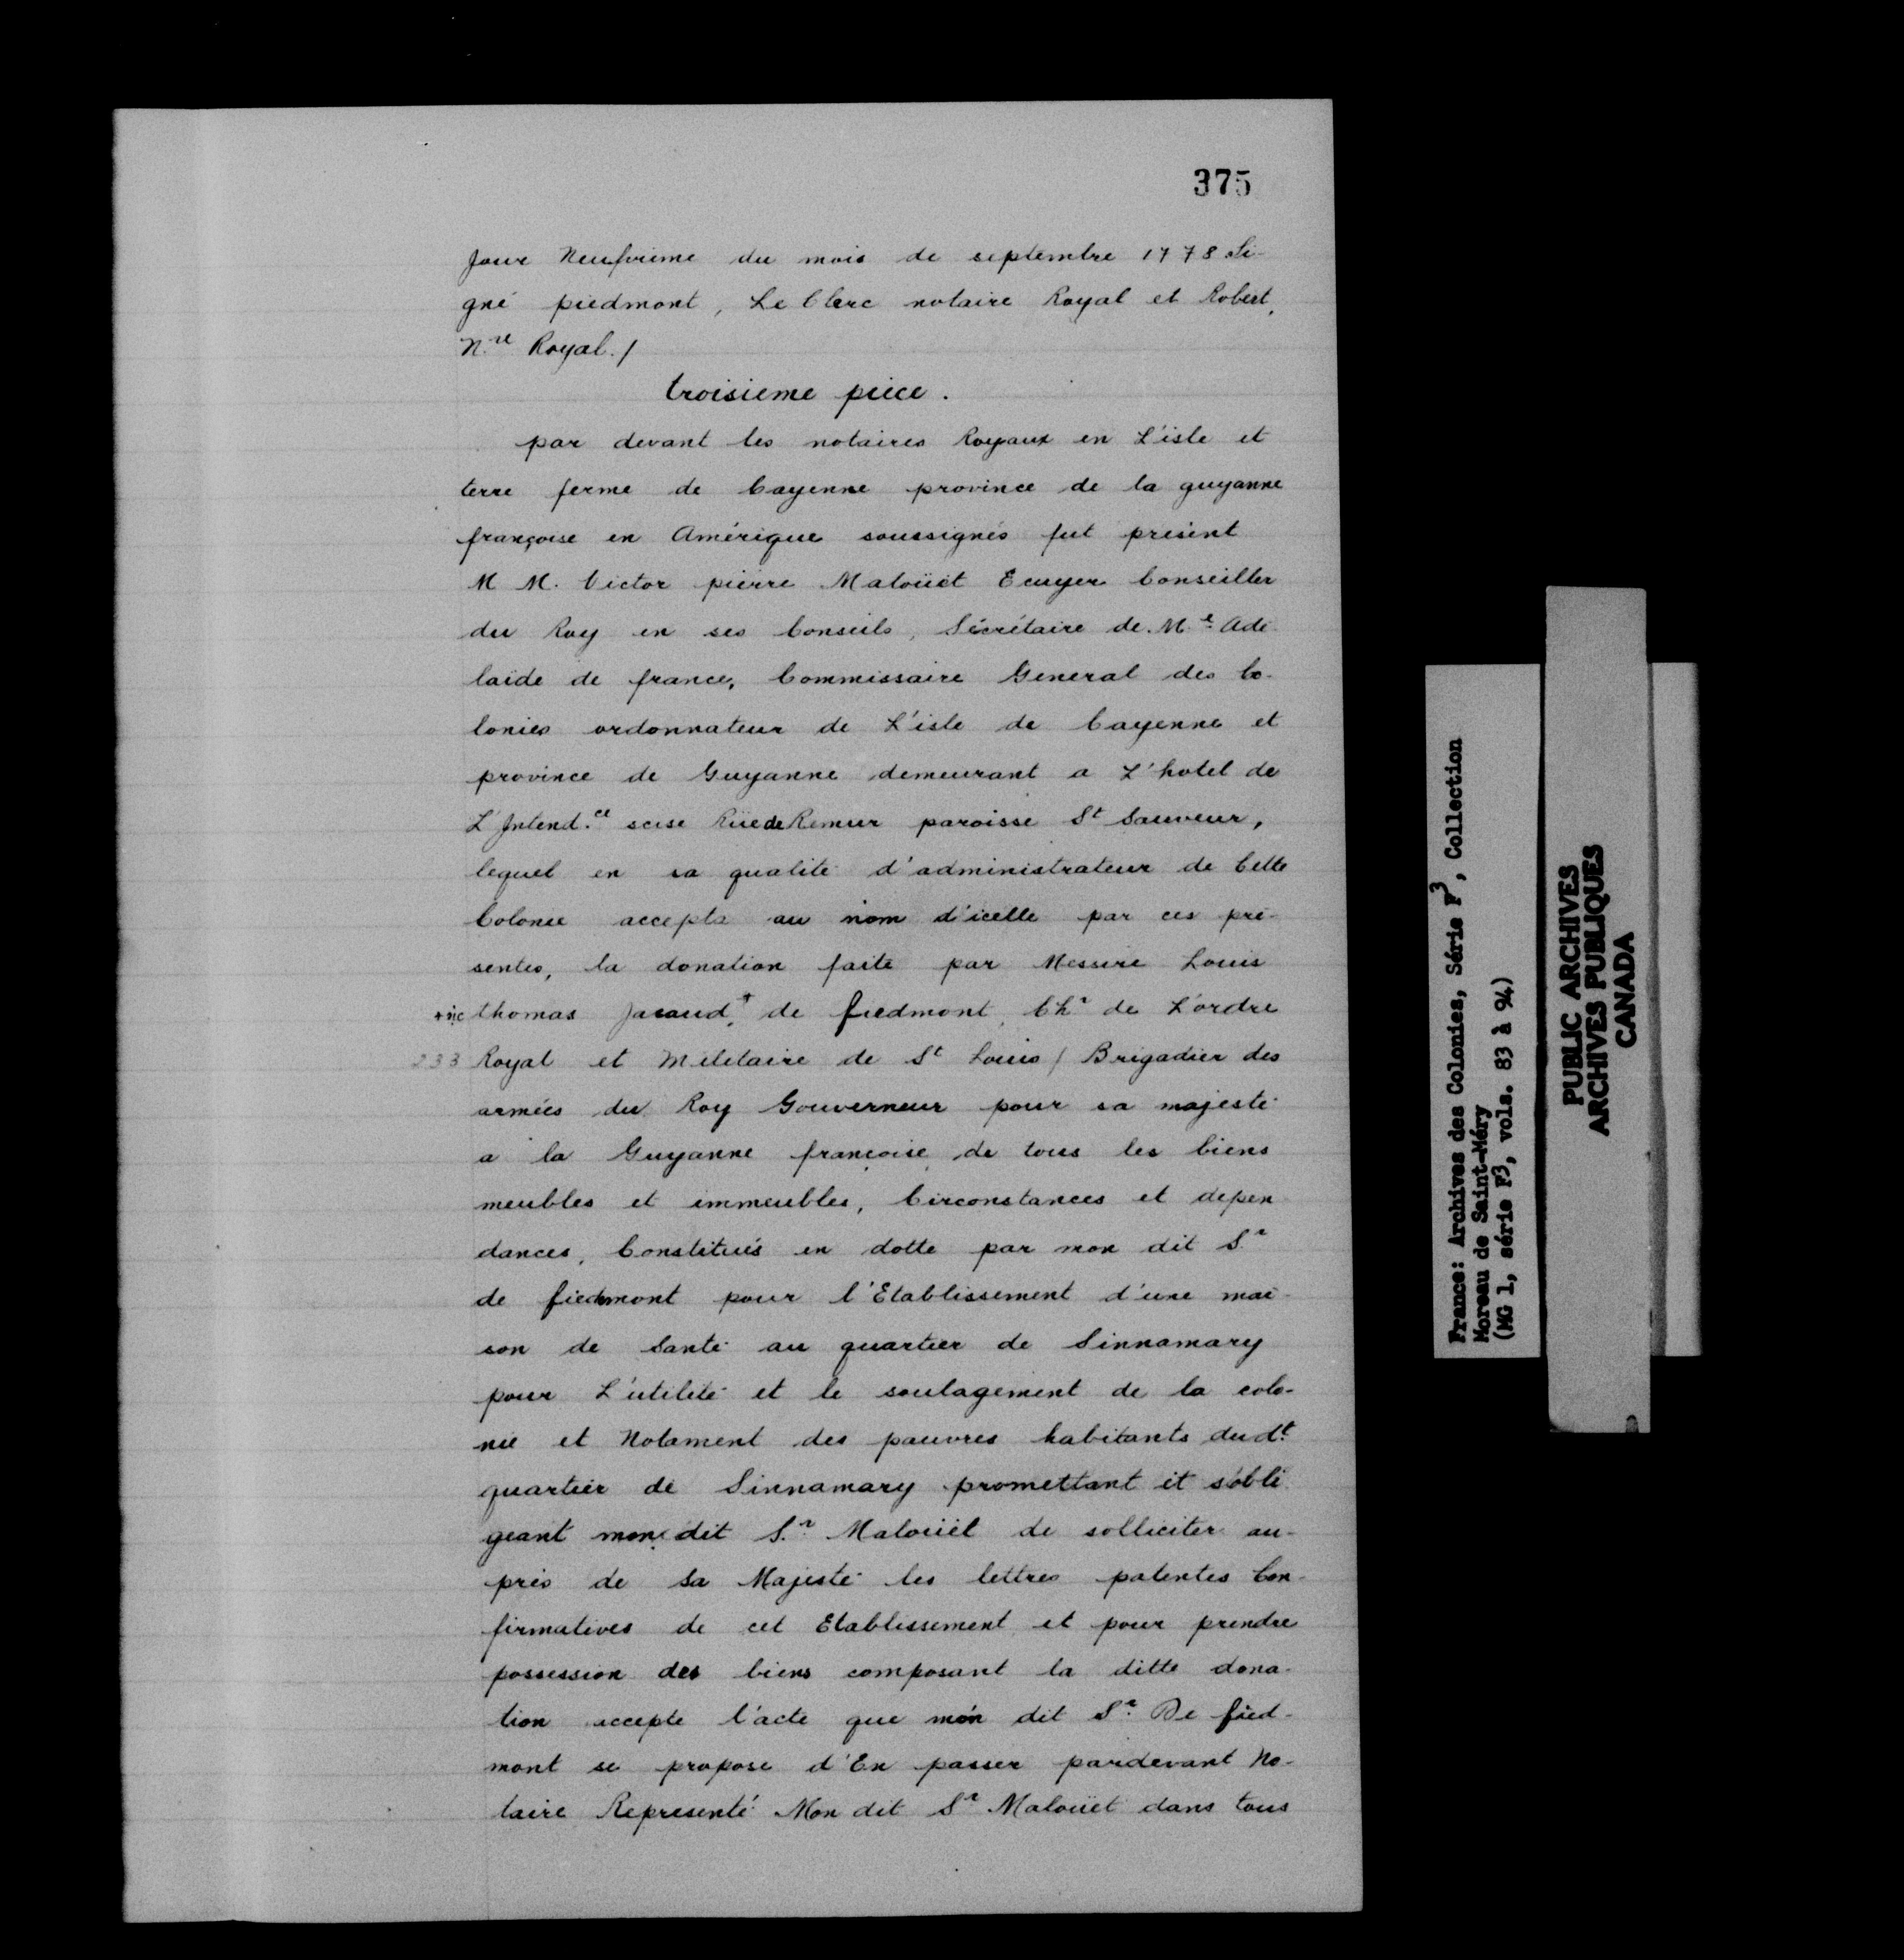 375
Jour Neufvieme du mois de septembre 1778 Si-
gné piedmont, Le Clerc notaire Royal et Robert,
N.re Royal./
troisieme piece.
par devant les notaires Royaux en L'isle et
terre ferme de Cayenne province de la guyanne
françoise en Amérique soussignés fut présent
M M. Victor pierre Malouët Ecuyer Conseiller
du Roy en ses Conseils, Sécrétaire de M.e Ade
laide de france, Commissaire General des Co-
lonies ordonnateur de L'isle de Cayenne et
province de Guyanne demeurant a L'hotel de
L'Intend.ce scise Rüe de Remur paroisse St Sauveur,
lequel en sa qualité d'administrateur de Cette
Colonie accepta au nom d'icelle par ces pré-
sentes, la donation faite par Messire Louis
+sic thomas Jacaud,+ de fiedmont, Chr de L'ordre
233 Royal et Militaire de St Louis / Brigadier des
armées du Roy Gouverneur pour sa majesté
a la Guyanne françoise, de tous les biens
meubles et immeubles, Circonstances et depen-
dances, Constitués en dotte par mon dit Sr
de fiedmont pour l'Etablissement d'une mai-
son de Santé au quartier de Sinnamary
pour L'utilité et le soulagement de la colo-
nie et Notament des pauvres habitants dudt
quartier de Sinnamary promettant et s'obli
geant mon dit S.r Malouët de solliciter au-
près de Sa Majesté les lettres patentes Con-
firmatives de cet Etablissement et pour prendre
possession des biens composant la ditte dona-
tion accepte l'acte que mon dit Sr. De fied-
mont se propose d'En passer pardevant No-
taire Representé Mon dit Sr Malouët dans tous
France: Archives des Colonies, Série F3, Collection
Moreau de Saint-Méry
(MG 1, série F3, vols. 83 à 94)
PUBLIC ARCHIVES
ARCHIVES PUBLIQUES
CANADA